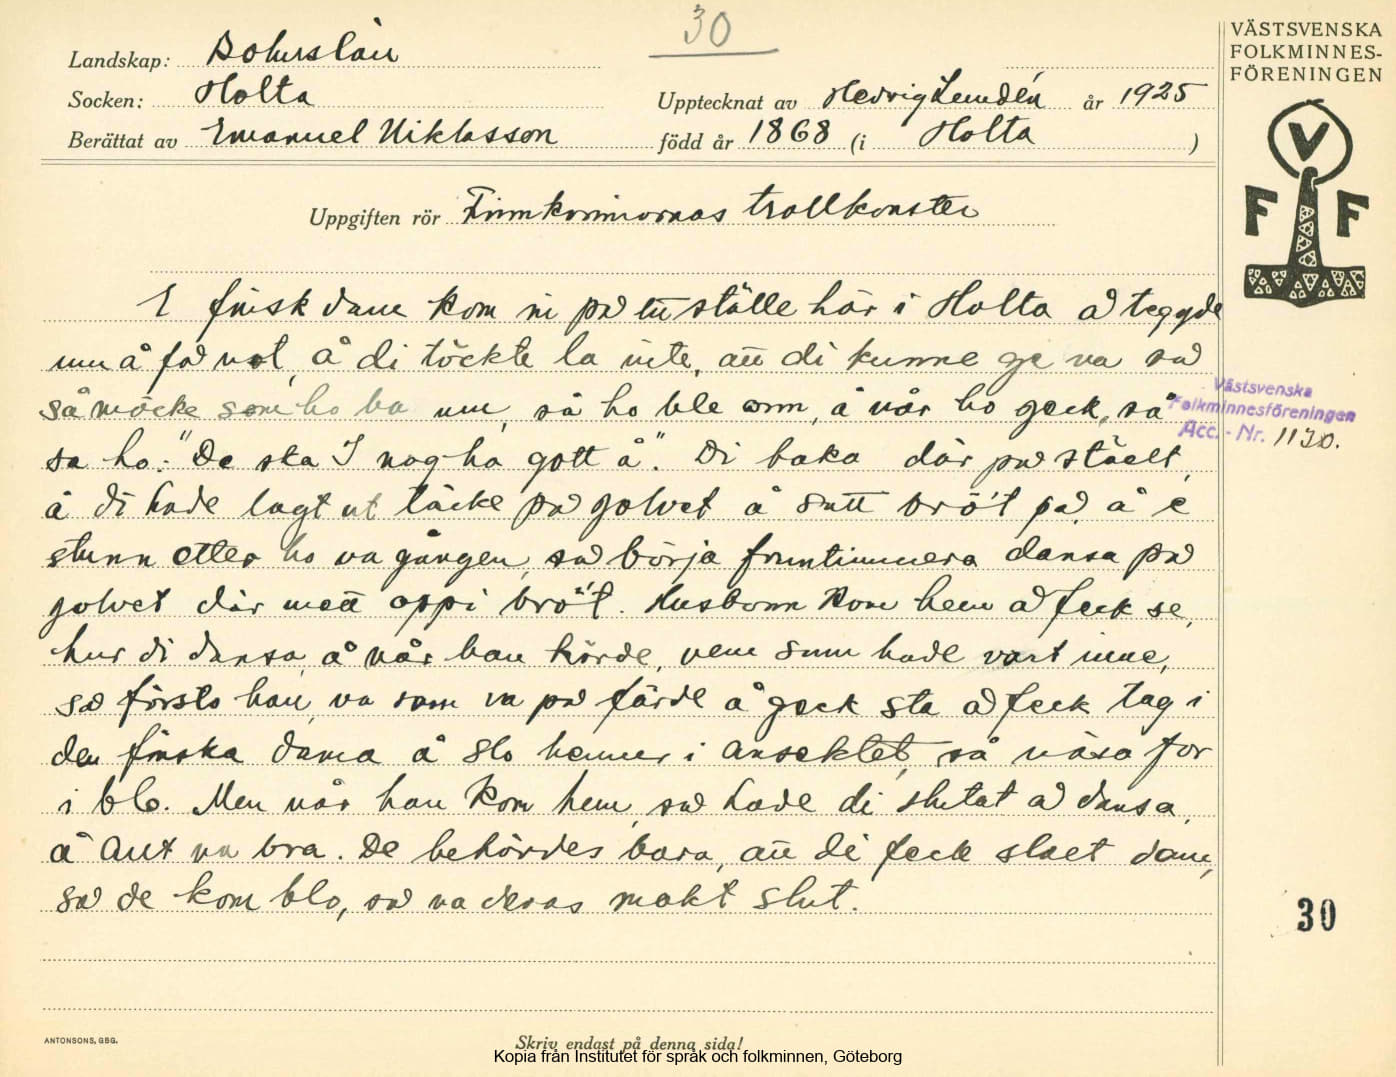 30
VÄSTSVENSKA
FOLKMINNES-
FÖRENINGEN
V
F F
Landskap: Bohuslän
Socken: Holta
Upptecknat av Hedvig Lemdén år 1925
Berättat av Emanuel Niklasson
född år 1868 (i Holta )
Uppgiften rör Finnkvinnornas trollkonster
E finsk dam kom in på ett ställe här i Holta å teggde
um å få not, å di töckte la inte, att di kunne ge na så
så möcke som ho ba um, så ho ble arm, å når ho geck, så
sa ho: "De ska I nog ha gott å". Di baka där på ställt,
å di hade lagt ut täcke på golvet å satt brö't på, å e
stunn etter ho va gången, så börja fruntimmera dansa på
golvet där mett oppi brö't. Husbonn kom hem å feck se,
hur di dansa, å når han hörde, vem sum hade vart inne,
så försto han, va som va på färde å geck sta å feck tag i
den finska dama å slo henner i ansektet, så näsa for
i blo. Men når han kom hem, så hade di slutat å dansa,
å allt va bra. De behördes bara, att di feck slaet dam,
så de kom blo, så va deras makt slut.
Västsvenska
Folkminnesföreningen
Acc. - Nr. 1130.
30
ANTONSONS, GBG.
Skriv endast på denna sida!
Kopia från Institutet för språk och folkminnen, Göteborg